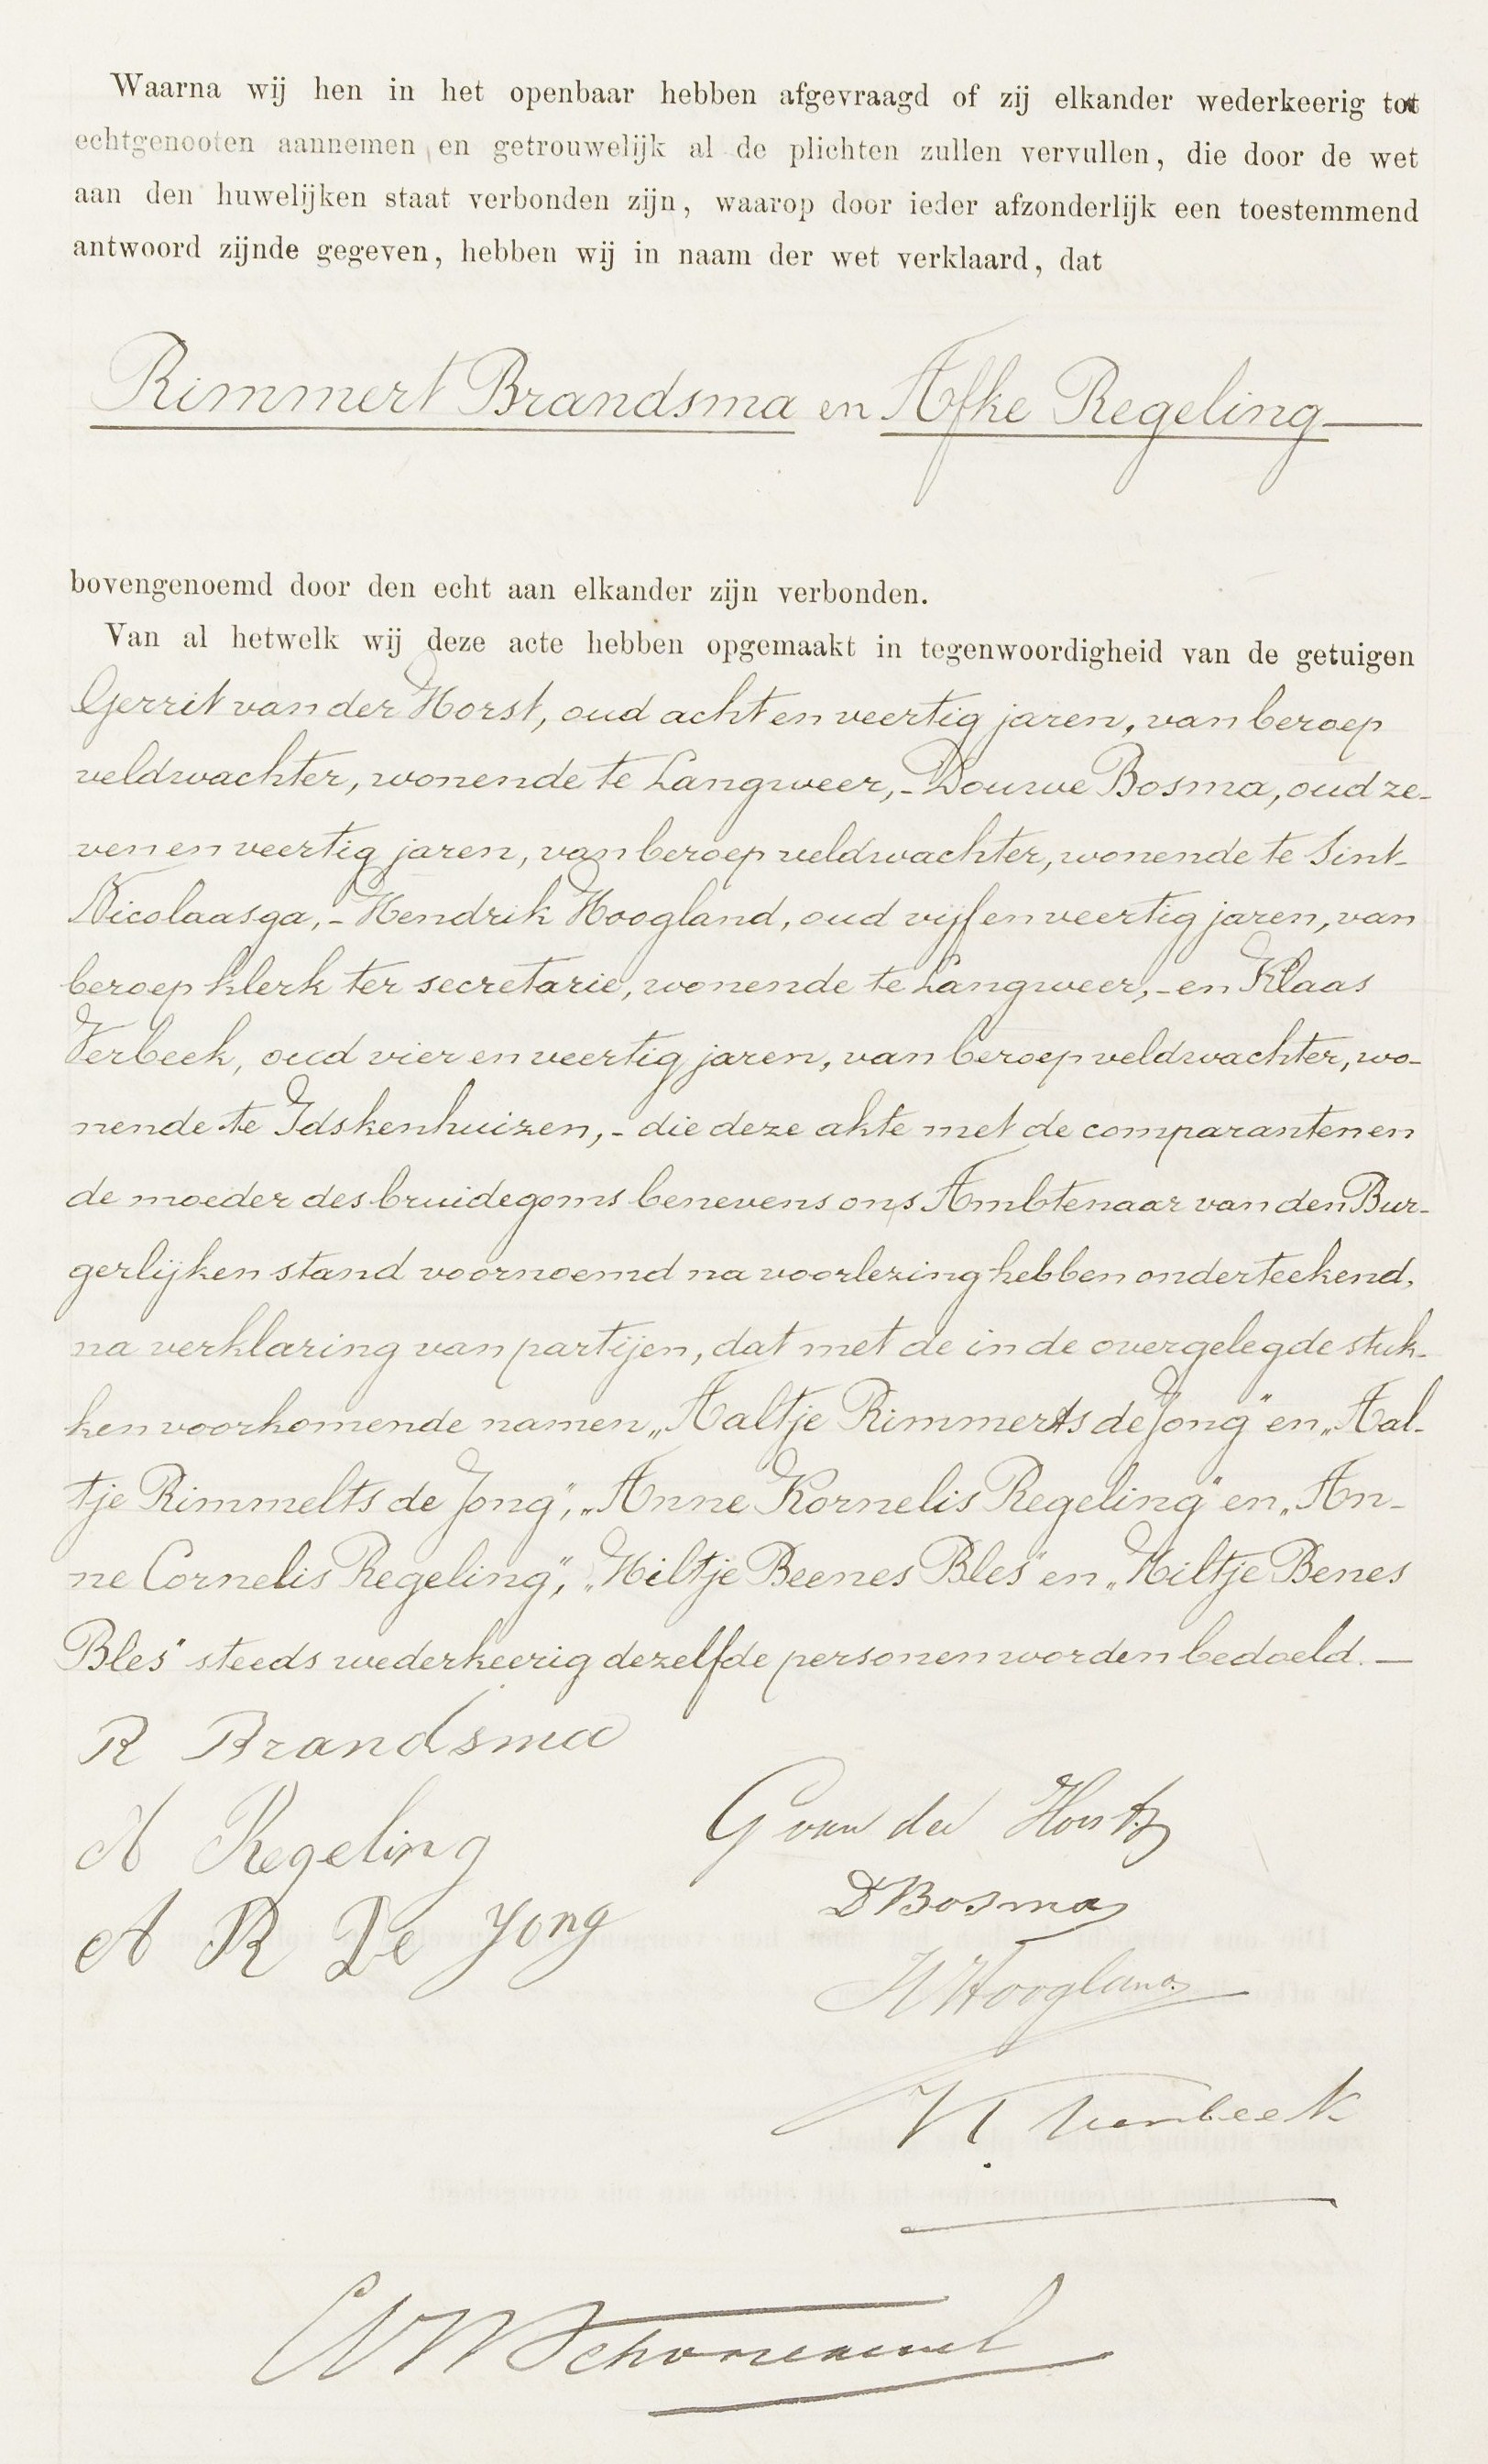 Waarna wij hen in het openbaar hebben afgevraagd of zij elkander wederkeerig tot
echtgenooten aannemen en getrouwelijk al de plichten zullen vervullen, die door de wet
aan den huwelijken staat verbonden zijn, waarop door ieder afzonderlijk een toestemmend
antwoord zijnde gegeven, hebben wij in naam der wet verklaard, dat
Rimmert Brandsma en Afke Regeling
bovengenoemd door den echt aan elkander zijn verbonden.
Van al hetwelk wij deze acte hebben opgemaakt in tegenwoordigheid van de getuigen
Gerrit van der Horst, oud acht en veertig jaren, van beroep
veldwachter, wonende te Langweer, - Douwe Bosma, oud ze-
ven en veertig jaren, van beroep veldwachter, wonende te Sint-
Nicolaasga, - Hendrik Hoogland, oud vijf en veertig jaren, van
beroep klerk ter secretarie, wonende te Langweer, - en Klaas
Verbeek, oud vier en veertig jaren, van beroep veldwachter, wo-
nende te Idskenhuizen, - die deze akte met de comparanten en
de moeder des bruidegoms benevens ons Ambtenaar van den Bur-
gerlijken stand voornoemd na voorlezing hebben onderteekend,
na verklaring van partijen, dat met de in de overgelegde stuk-
ken voorkomende namen „Aaltje Rimmerts de Jong" en „Aal-
tje Rimmelts de Jong", „Anne Kornelis Regeling" en „An-
ne Cornelis Regeling", „Hiltje Beenes Bles" en „Hiltje Benes
Bles" steeds wederkeerig dezelfde personen worden bedoeld. —
R Brandsma
A Regeling
G van der Horst
A R De Jong
D Bosma
H Hoogland
K Verbeek